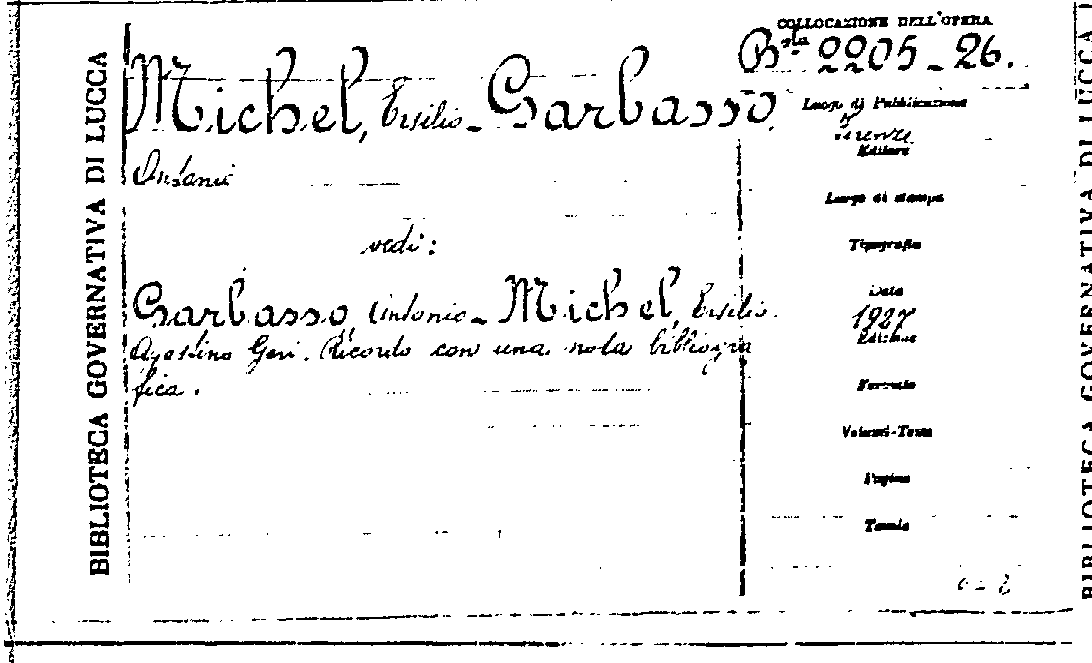 BIBLIOTECA GOVERNATIVA DI LUCCA
COLLOCAZIONE DELL'OPERA
Bta 2205-26.
Michel, Ersilio - Garbasso,
Antonio
vedi:
Garbasso, Antonio - Michel, Ersilio.
Agostino Gori. Ricordo con una nota bibliogra
fica.
Luogo di Pubblicazione
Firenze
Editore
Luogo di stampa
Tipografia
Data
1927
Edizione
Formato
Volumi-Tomi
Pagine
Tavole
BIBLIOTECA GOVERNATIVA DI LUCCA